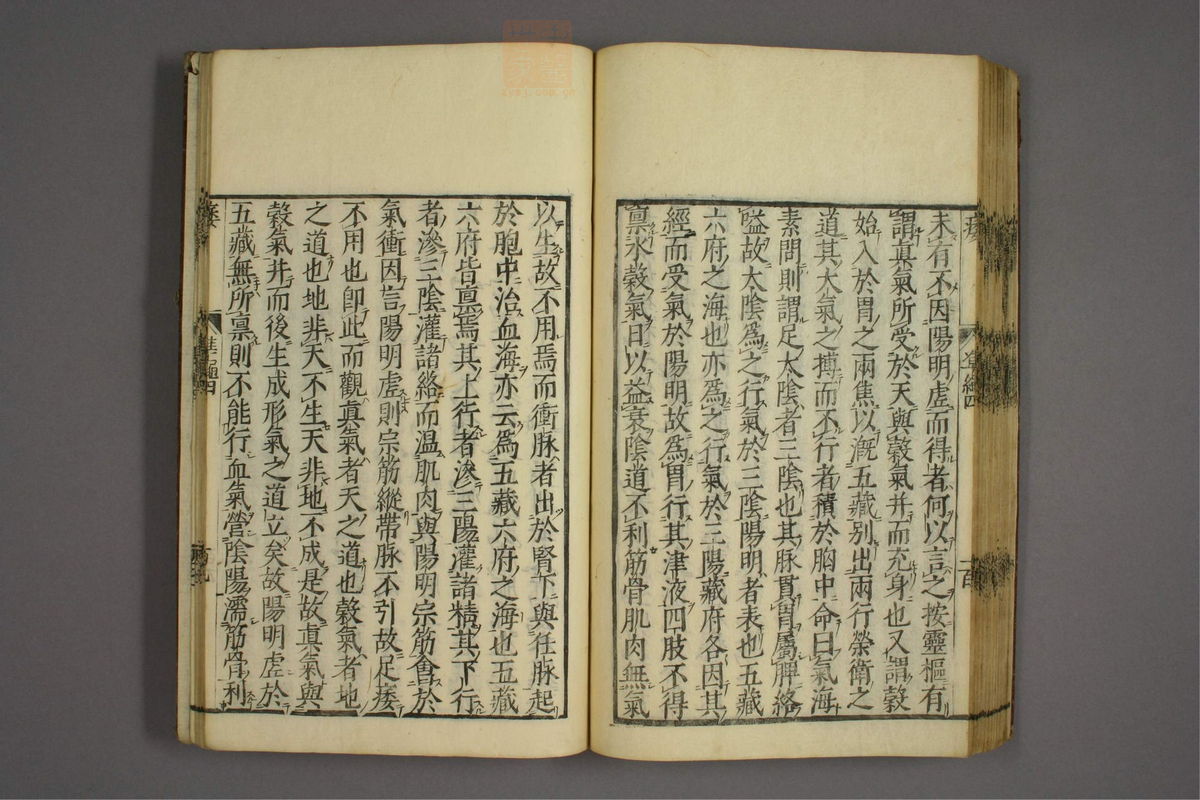 未有不因陽明虛而得者何以言之按靈樞有
謂真氣所受於天與穀氣并而充身也又謂穀
始入於胃之兩焦以漑五藏別出兩行榮衛之
道其大氣之搏而不行者積於胸中命曰氣海
素問則謂足太陰者三陰也其脉貫胃屬脾絡
嗌故太陰爲之行氣於三陰陽明者表也五藏
六府之海也亦爲之行氣於三陽藏府各因其
經而受氣於陽明故爲胃行其津液四肢不得
禀水穀氣日以益衰陰道不利筋骨肌肉無氣
以生故不用焉而衝脉者出於腎下與任脉起
於胞中治血海亦云爲五藏六府之海也五藏
六府皆禀焉其上行者滲三陽灌諸精其下行
者滲三陰灌諸絡而温肌肉與陽明宗筋會於
氣衝因言陽明虛則宗筋縱帶脉不引故足痿
不用也卽此而觀真氣者天之道也穀氣者地
之道也地非天不生天非地不成是故真氣與
穀氣并而後生成形氣之道立矣故陽明虛於
五藏無所禀則不能行血氣營陰陽濡筋骨利
痿